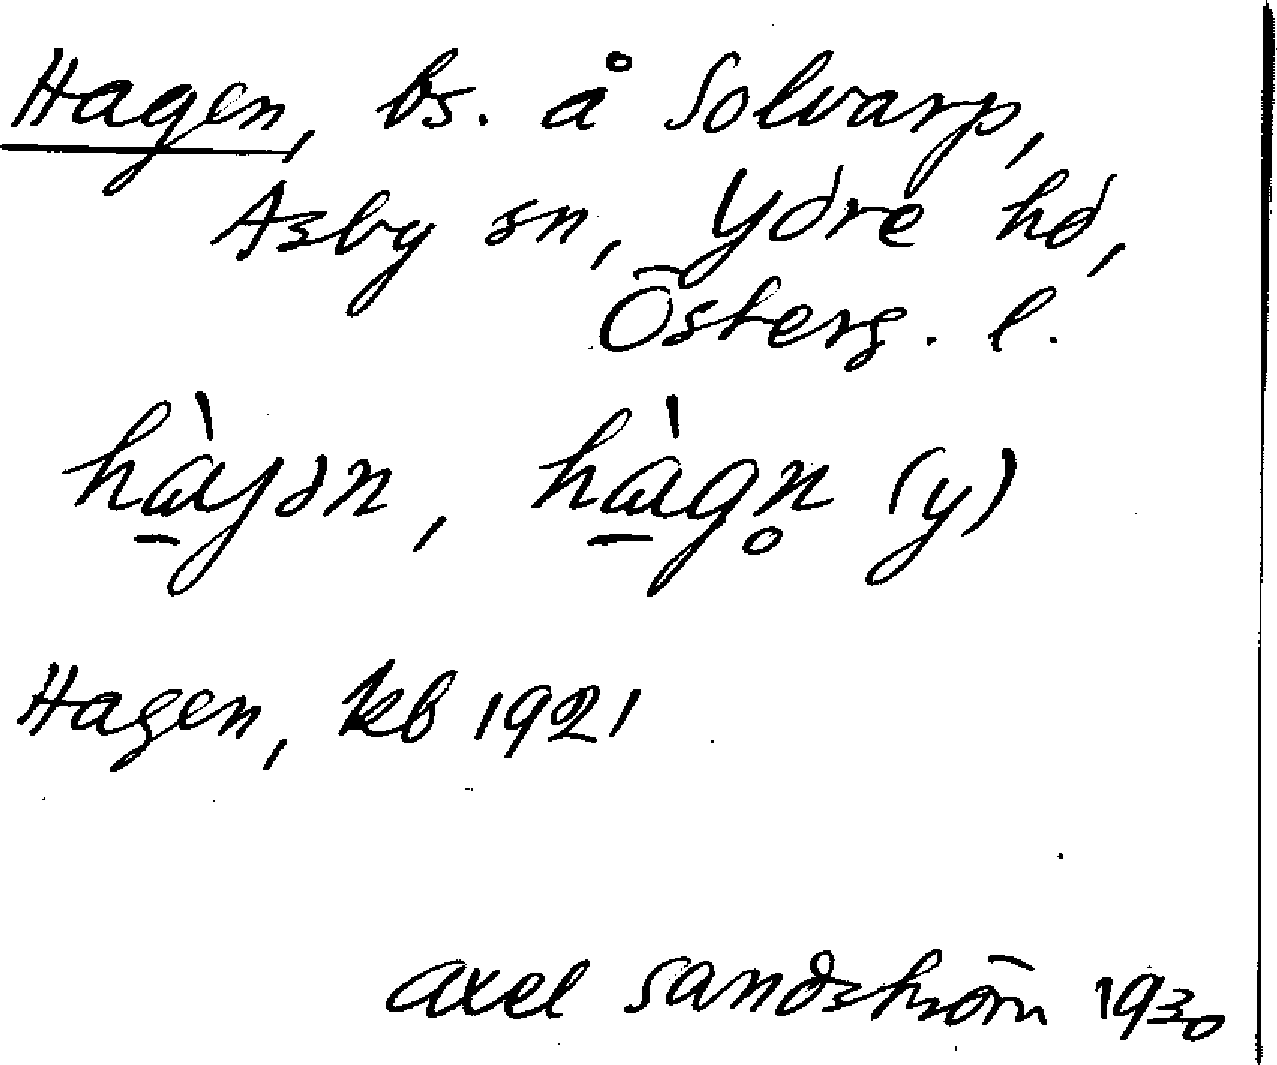 Hagen, bs. å Solvarp,
Asby sn, Ydre hd,
Österg. l.
hàgən, hàgn̥ (y)
Hagen, kb 1921
Axel Sandström 1930